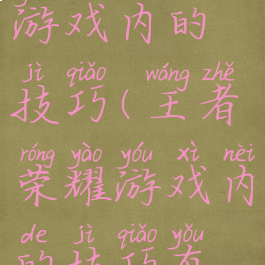 游戏内的
jì qiǎo wáng zhě
技巧(王者
róng yào yóu xì nèi
荣耀游戏内
de jì qiǎo yǒu
的技巧有